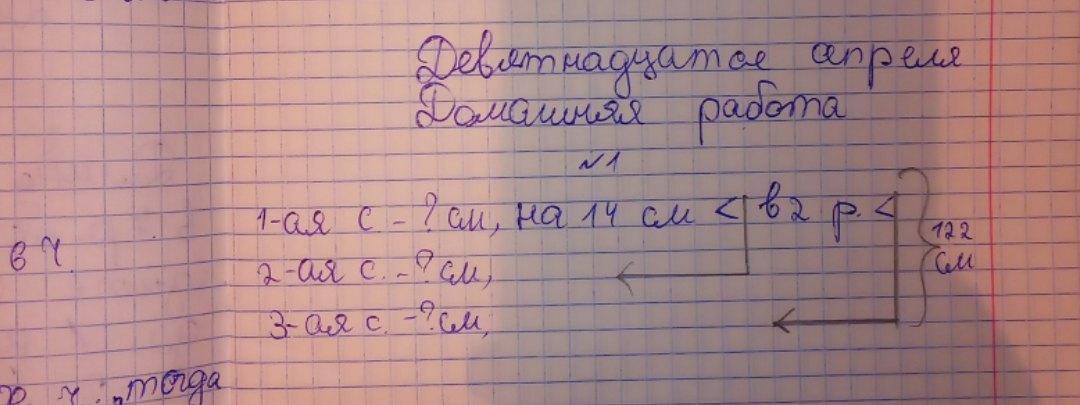 Девятнадцатое апреля
Домашняя работа
№1
1-ая с - ? см, на 14 см < в 2 р. <
122 см
2-ая с. - ? см,
3-ая с. - ? см,
в ч.
ч. тогда